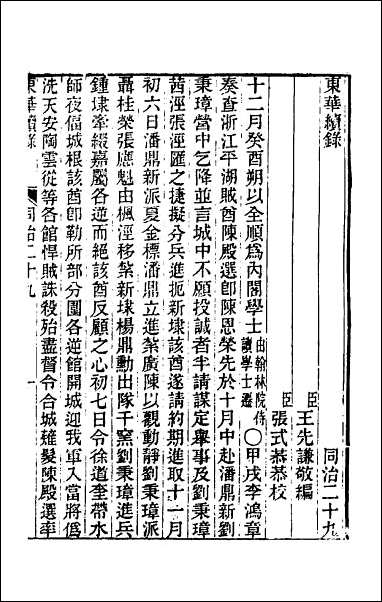 東華續錄
同治二十九
臣王先謙敬編
臣張式恭恭校
十二月癸酉朔以全順爲內閣學士由翰林院侍讀學士遷〇甲戌李鴻章
奏查浙江平湖賊酋陳殿選卽陳恩榮先於十月中赴潘鼎新劉
秉璋營中乞降並言城中不願投誠者半請謀定舉事及劉秉璋
茜涇張涇匯之捷擬分兵進扼新埭該酋遂請約期進取十一月
初六日潘鼎新派夏金標潘鼎立進紮廣陳以觀動靜劉秉璋派
聶桂榮張應魁由楓涇移紮新埭楊鼎勳出隊干窰劉秉璋進兵
鍾埭牽綴嘉屬各逆而絕該酋反顧之心初七日令徐道奎帶水
師夜偪城根該酋卽勒所部分圍各逆館開城迎我軍入當將僞
洗天安陶雲從等各館悍賊誅殺殆盡督令合城薙髮陳殿選率
東華續錄
同治二十九
一